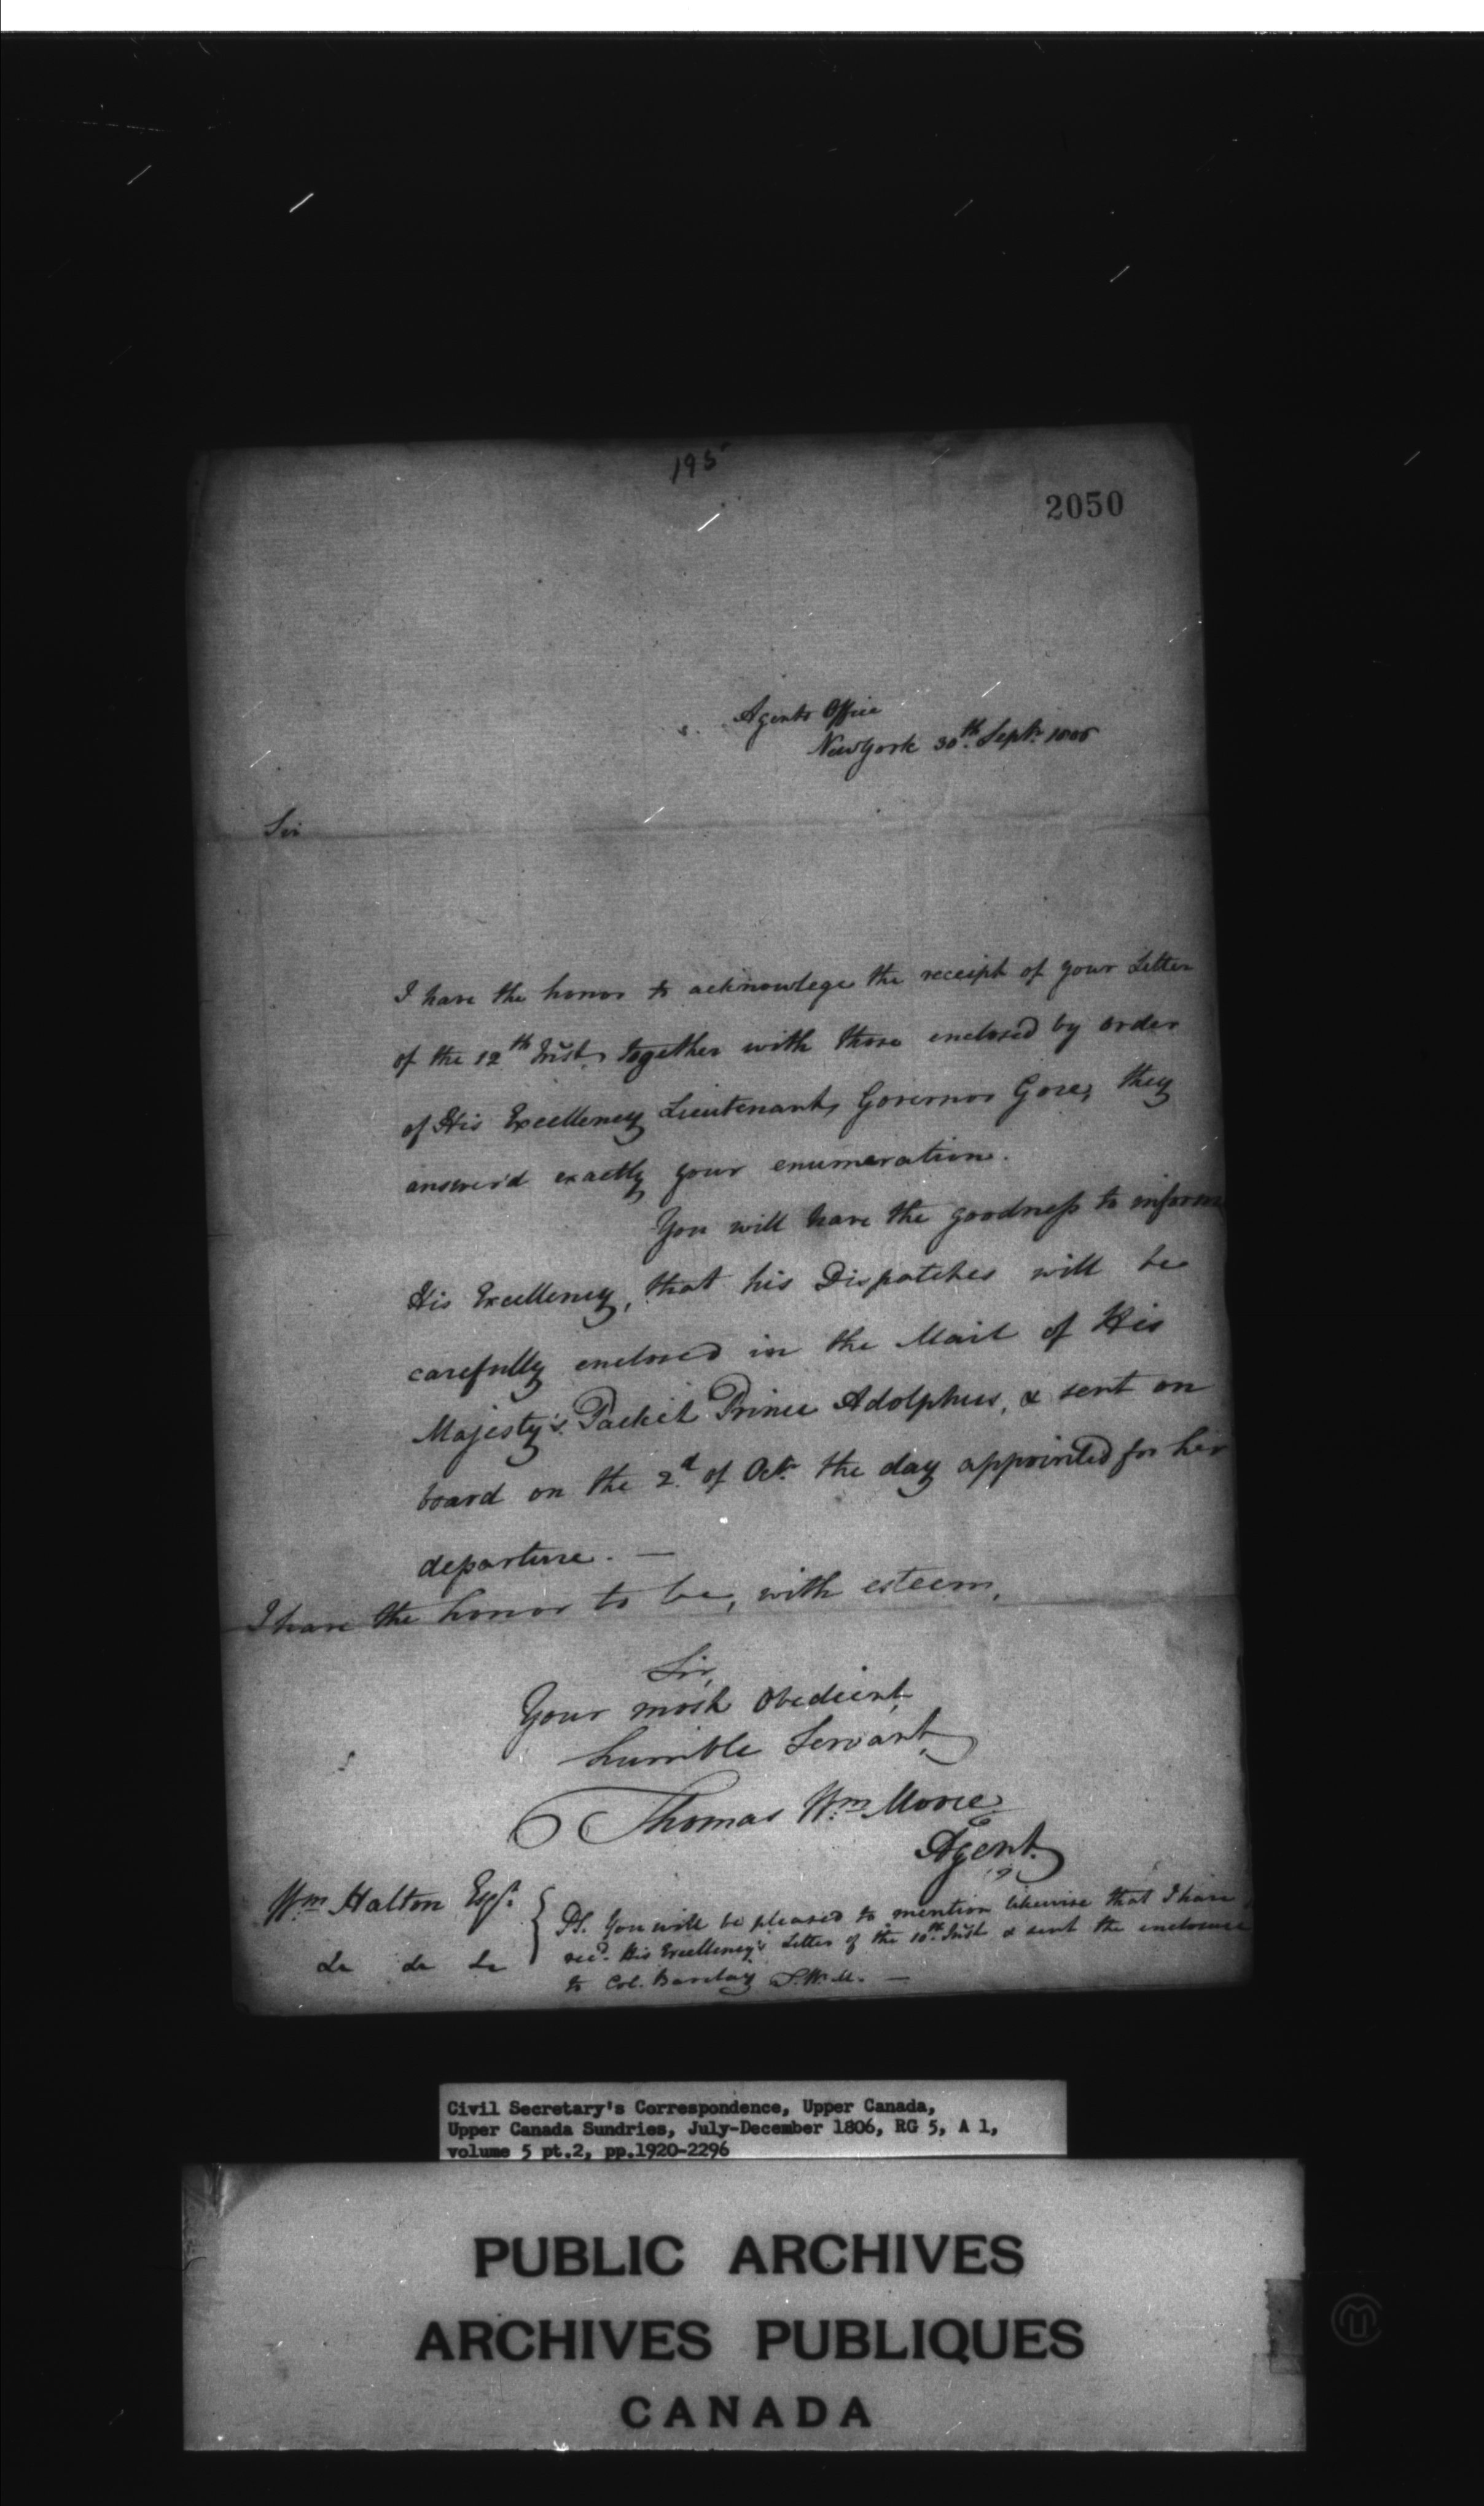 195
2050
Agents Office
New York 30th. Septr. 1806
Sir
I have the honor to acknowlege the receipt of your Letter
of the 12th Inst, together with those enclosed by order
of His Excellency Lieutenant, Governor Gore, they
answer'd exactly your enumeration.
You will have the goodness to inform
His Excellency, that his Dispatches will be
carefully enclosed in the Mail of His
Majesty's Packet Prince Adolphus, & sent on
board on the 2d. of Octr. the day appointed for her
departure. —
I have the honor to be, with esteem,
Sir,
Your most Obedient,
humble Servant,
Thomas Wm. Moore
Agent.
Wm. Halton Esqr.
PS. You will be pleased to mention likewise that I have
recd. His Excellency's Letter of the 10th. Inst & sent the enclosure
to Col. Barclay T.W.M. —
Civil Secretary's Correspondence, Upper Canada,
Upper Canada Sundries, July-December 1806, RG 5, A 1,
volume 5 pt.2, pp.1920-2296
PUBLIC ARCHIVES
ARCHIVES PUBLIQUES
CANADA